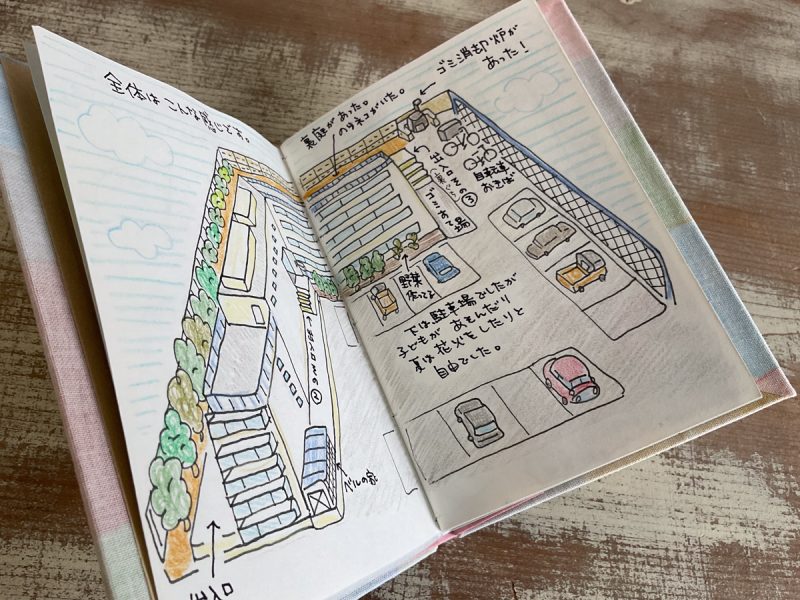 全体はこんな感じでした。
出入口
ベルの家
裏庭があった。
のラネコがいた。
← ゴミ消却炉が
あった！
出入口その③
ゴミすて場
自転車
おきば
野菜
下は駐車場でしたが
子どもがあそんだり
夏は花火をしたりと
自由でした。